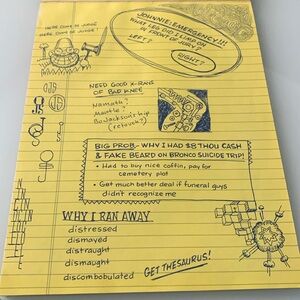 HERE COME DE JUDGE
HERE COME DE JUDGE!
JOHNNIE: EMERGENCY!!!
WHAT LEG DID I LIMP ON
IN FRONT OF JURY?
LEFT?
RIGHT?
OJS
NEED GOOD X-RAYS
OF BAD KNEE
Namath?
Mantle?
Bo Jackson's hip
(retouch?)
BIG PROB- WHY I HAD $8 THOU CASH
& FAKE BEARD ON BRONCO SUICIDE TRIP!
• Had to buy nice coffin, pay for
cemetery plot
• Get much better deal if funeral guys
didn't recognize me
WHY I RAN AWAY
distressed
dismayed
distraught
dismaught
discombobulated
GET THESAURUS!